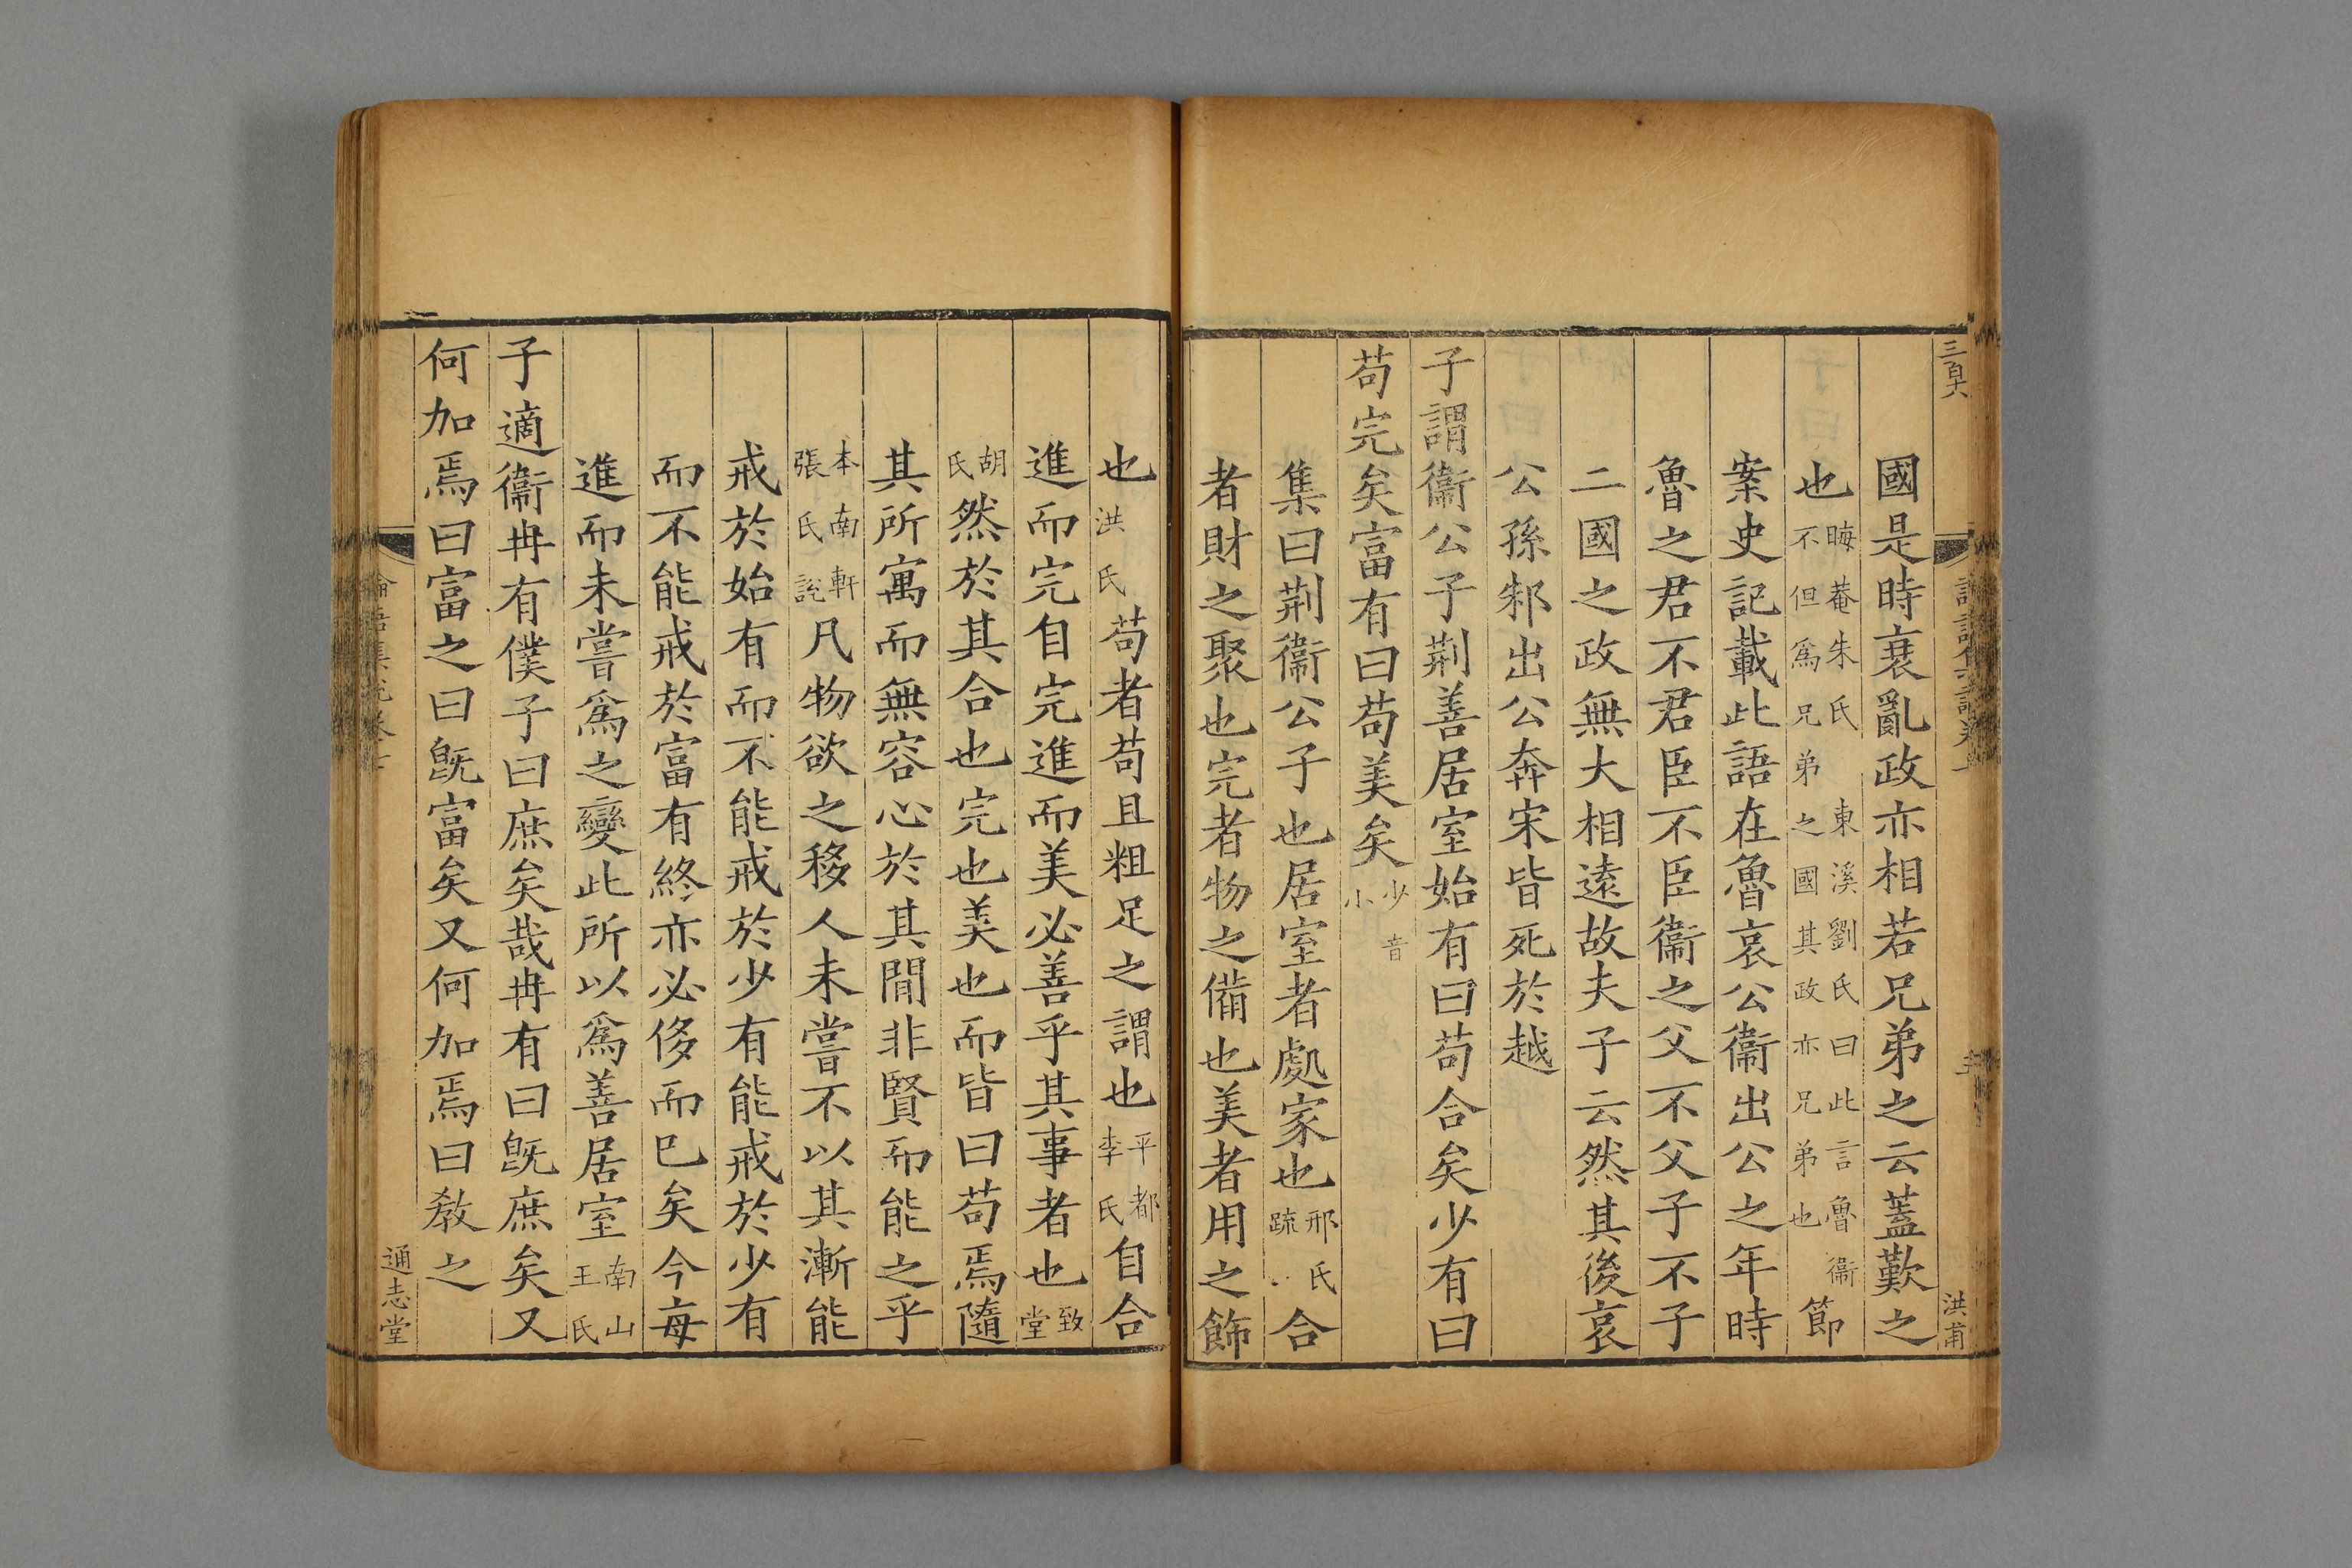 三百六
洪甫
國是時衰亂政亦相若兄弟之云蓋歎之
也晦菴朱氏 東溪劉氏曰此言魯衞不但爲兄弟之國其政亦兄弟也節
案史記載此語在魯哀公衞出公之年時
魯之君不君臣不臣衞之父不父子不子
二國之政無大相遠故夫子云然其後哀
公孫邾出公奔宋皆死於越
子謂衞公子荆善居室始有曰苟合矣少有曰
苟完矣富有曰苟美矣少音小
集曰荆衞公子也居室者處家也邢氏疏合
者財之聚也完者物之備也美者用之飾
也洪氏苟者苟且粗足之謂也平都李氏自合
進而完自完進而美必善乎其事者也致堂
胡氏然於其合也完也美也而皆曰苟焉隨
其所寓而無容心於其間非賢而能之乎
本南軒張氏說凡物欲之移人未嘗不以其漸能
戒於始有而不能戒於少有能戒於少有
而不能戒於富有終亦必侈而已矣今每
進而未嘗爲之變此所以爲善居室南山王氏
子適衞冉有僕子曰庶矣哉冉有曰旣庶矣又
何加焉曰富之曰旣富矣又何加焉曰敎之
論語集說卷七
通志堂